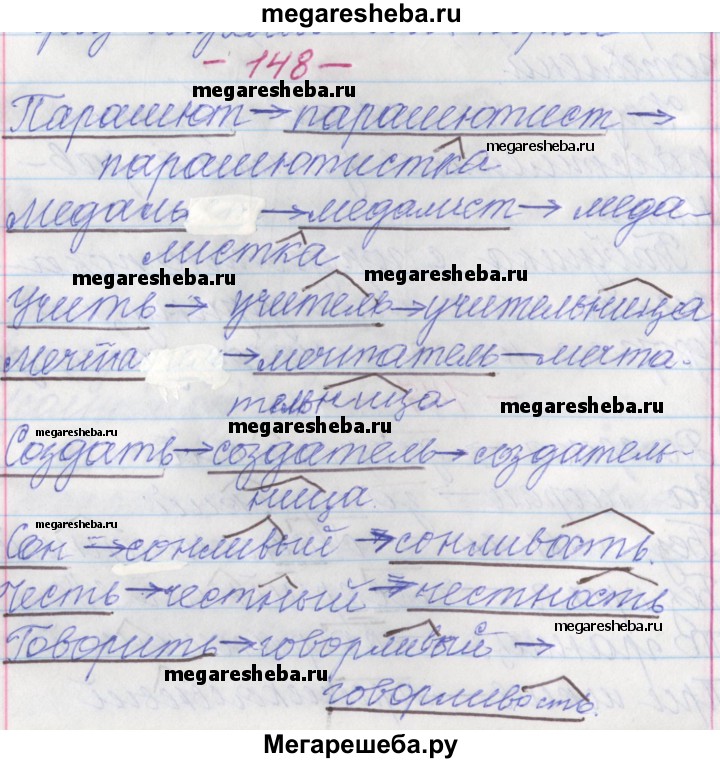 megaresheba.ru
- 148 -
megaresheba.ru
Парашют → парашютист →
парашютистка
megaresheba.ru
Медаль → медалист → меда-
листка
megaresheba.ru
megaresheba.ru
Учить → учитель → учительница
Мечта → мечтатель – мечта-
тельница
megaresheba.ru
megaresheba.ru
megaresheba.ru
Создать → создатель → создатель-
ница.
megaresheba.ru
Сон → сонливый → сонливость.
Честь → честный → честность
megaresheba.ru
Говорить → говорливый →
megaresheba.ru
говорливость.
Мегарешеба.ру